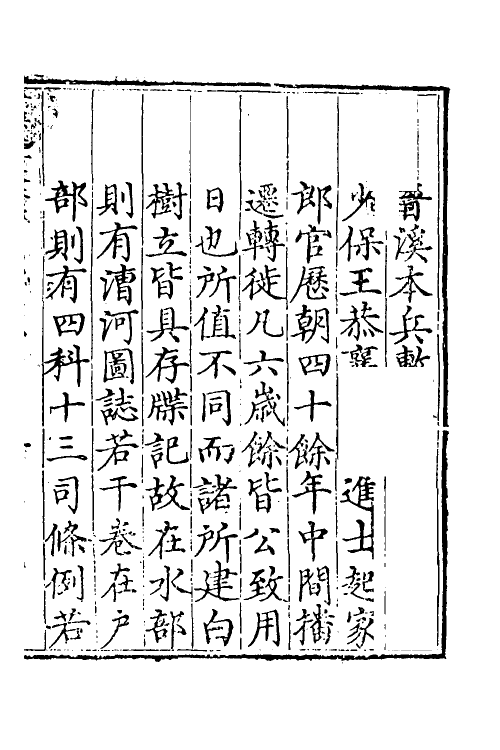 晉溪本兵敷
少保王恭襄進士起家
郎官歷朝四十餘年中間播
遷轉徙凡六歲餘皆公致用
日也所值不同而諸所建白
樹立皆具存牒記故在水部
則有漕河圖誌若干卷在户
部則有四科十三司條例若